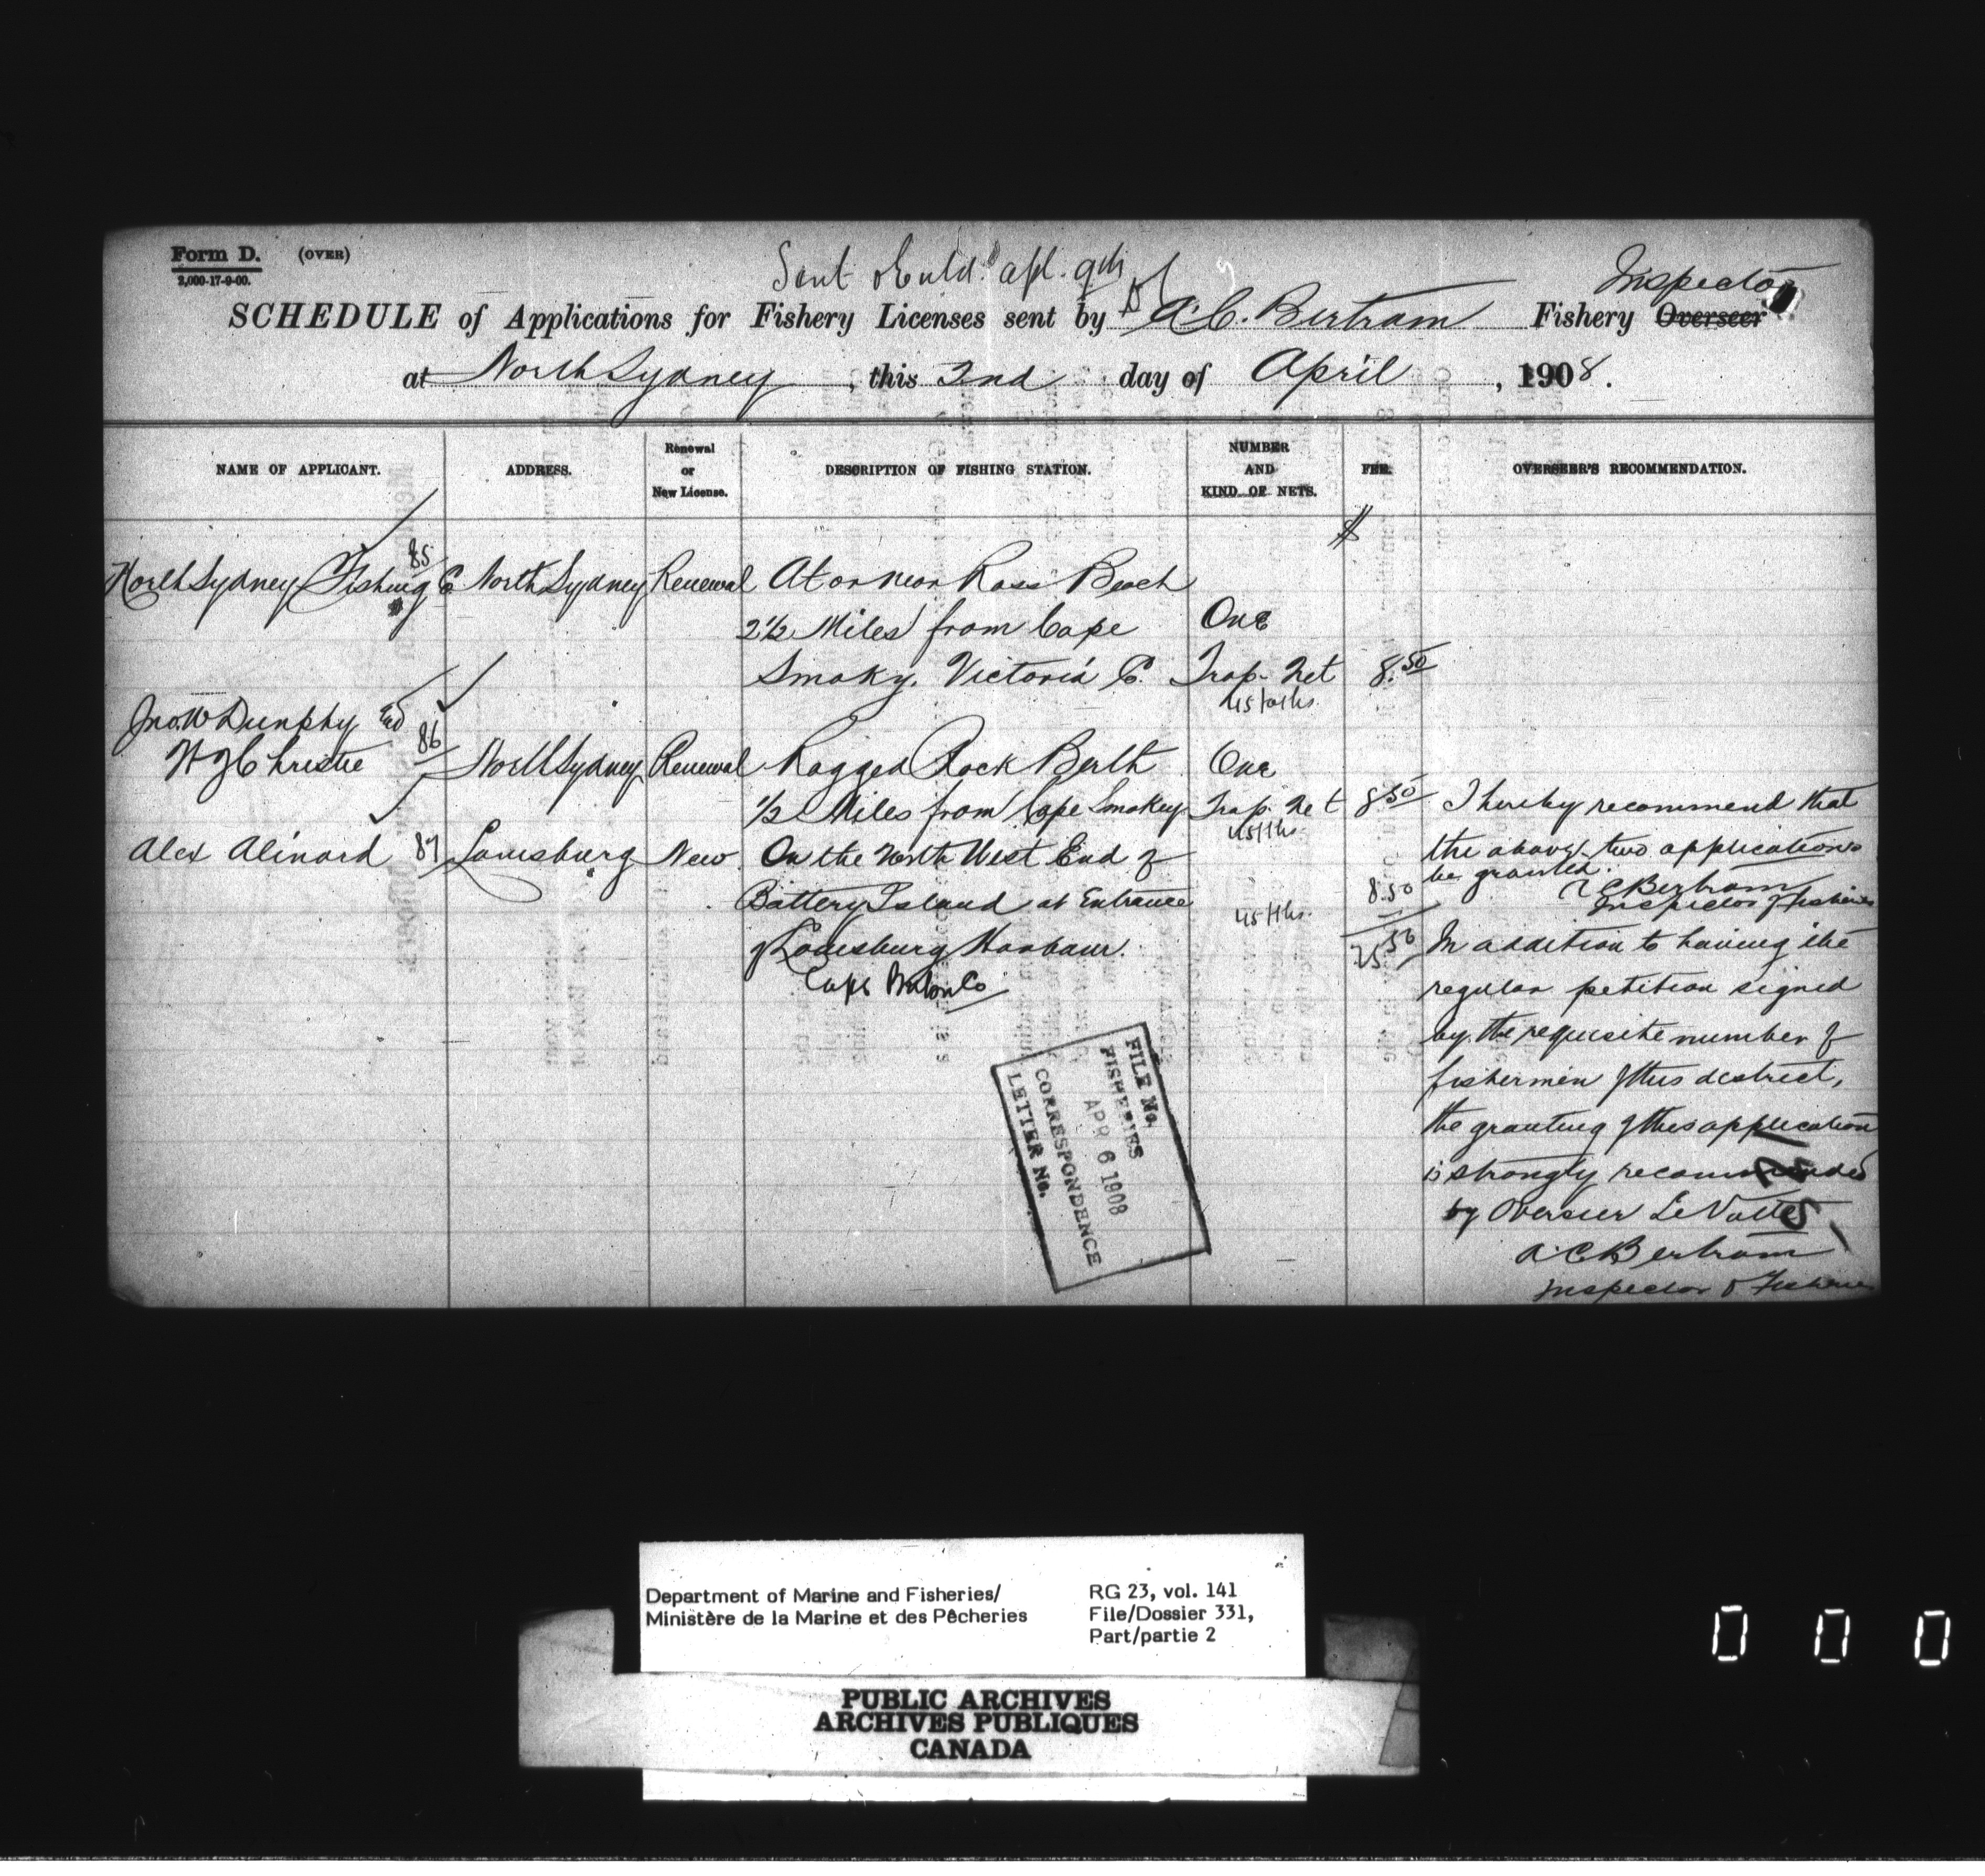 Form D. (OVER)
2,000-17-9-00.
Sent apl. 9th
Inspector
SCHEDULE of Applications for Fishery Licenses sent by A.C. Bertram Fishery Overseer
at North Sydney, this 2nd day of April, 1908.
NAME OF APPLICANT. ADDRESS. Renewal or New License. DESCRIPTION OF FISHING STATION. NUMBER AND KIND OF NETS. FEE. OVERSEER'S RECOMMENDATION.
$
85
North Sydney Fishing Co North Sydney Renewal At or near Ross Beach
2 1/2 Miles from Cape One
Smoky, Victoria C. Trap. Net 8.50
45 faths.
Jno. W Dunphy and
86
W J Christie North Sydney Renewal Ragged Rock Berth One
1/2 Miles from Cape Smokey Trap. Net 8.50 I hereby recommend that
45 fths.
Alex Alinard 87 Louisburg New On the North West End of the above two applications
be granted.
Battery Island at Entrance 45 fths. 8.50 A C Bertram
Inspector of Fisheries
of Louisburg Harbour. 25.50 In addition to having the
Cape Breton Co regular petition signed
by the requisite number of
fishermen of this district,
the granting of this application
is strongly recommended
by Overseer LeVatte
A. C. Bertram
Inspector of Fisheries
FILE No.
FISHERIES
APR 6 1908
CORRESPONDENCE
LETTER No.
Department of Marine and Fisheries/
Ministère de la Marine et des Pêcheries
RG 23, vol. 141
File/Dossier 331,
Part/partie 2
PUBLIC ARCHIVES
ARCHIVES PUBLIQUES
CANADA
0 0 0